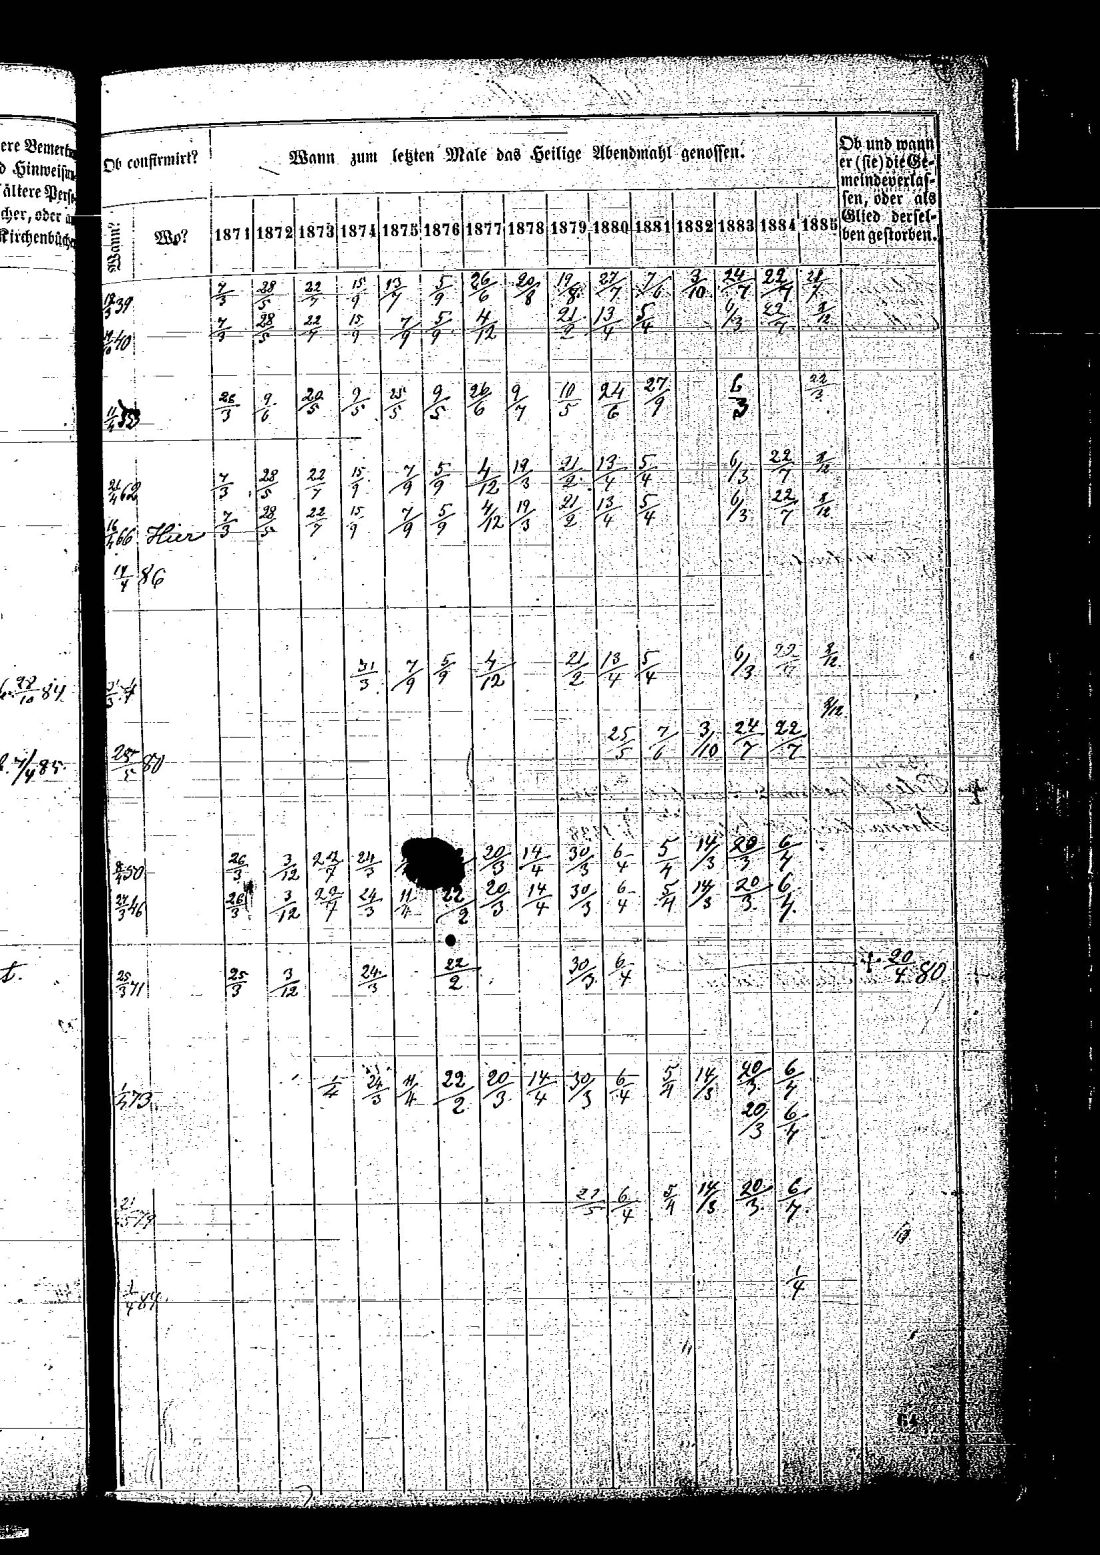 ere Bemerku
d Hinweisun
ältere Perso
cher, oder a
Kirchenbüche
Ob confirmirt?
Wann zum letzten Male das Heilige Abendmahl genossen.
Ob und wann
er (sie) die Ge-
meinde verlas-
sen, oder als
Glied dersel-
ben gestorben.
Wann? Wo? 1871 1872 1873 1874 1875 1876 1877 1878 1879 1880 1881 1882 1883 1884 1885
39 7/3 28/5 22/7 15/9 13/7 5/9 26/6 20/8 19/8 27/7 7/6 3/10 24/7 22/7 28/7
40 7/3 28/5 22/7 15/9 7/9 5/9 4/12 21/2 13/4 5/4 6/3 22/7 8/12
26/3 9/6 20/5 9/5 25/5 9/5 26/6 9/7 10/5 24/6 27/9 6/3 22/3
62 7/3 28/5 22/7 15/9 7/9 5/9 4/12 19/3 21/2 13/4 5/4 6/3 22/7 8/12
16/4 66 Hier 7/3 28/5 22/7 15/9 7/9 5/9 4/12 19/3 21/2 13/4 5/4 6/3 22/7 8/12
86
84 31/3 7/9 5/9 4/12 21/2 13/4 5/4 6/3 22/7 8/12
8/12
7/4 85. 25/5 80 25/5 7/6 3/10 24/7 22/7
50 26/3 3/12 24/3 20/3 14/4 30/3 6/4 5/4 14/3 20/3 6/4
46 26/3 3/12 24/3 11/4 22/2 20/3 14/4 30/3 6/4 5/4 14/3 20/3 6/4
t. 25/3 71 25/3 3/12 24/3 22/2 30/3 6/4 † 20/4 80
1/4 73 1/4 24/3 11/4 22/2 20/3 14/4 30/3 6/4 5/4 14/3 20/3 6/4
20/3 6/4
79 27/5 6/4 5/4 14/3 20/3 6/4
1/4 84 1/4
64